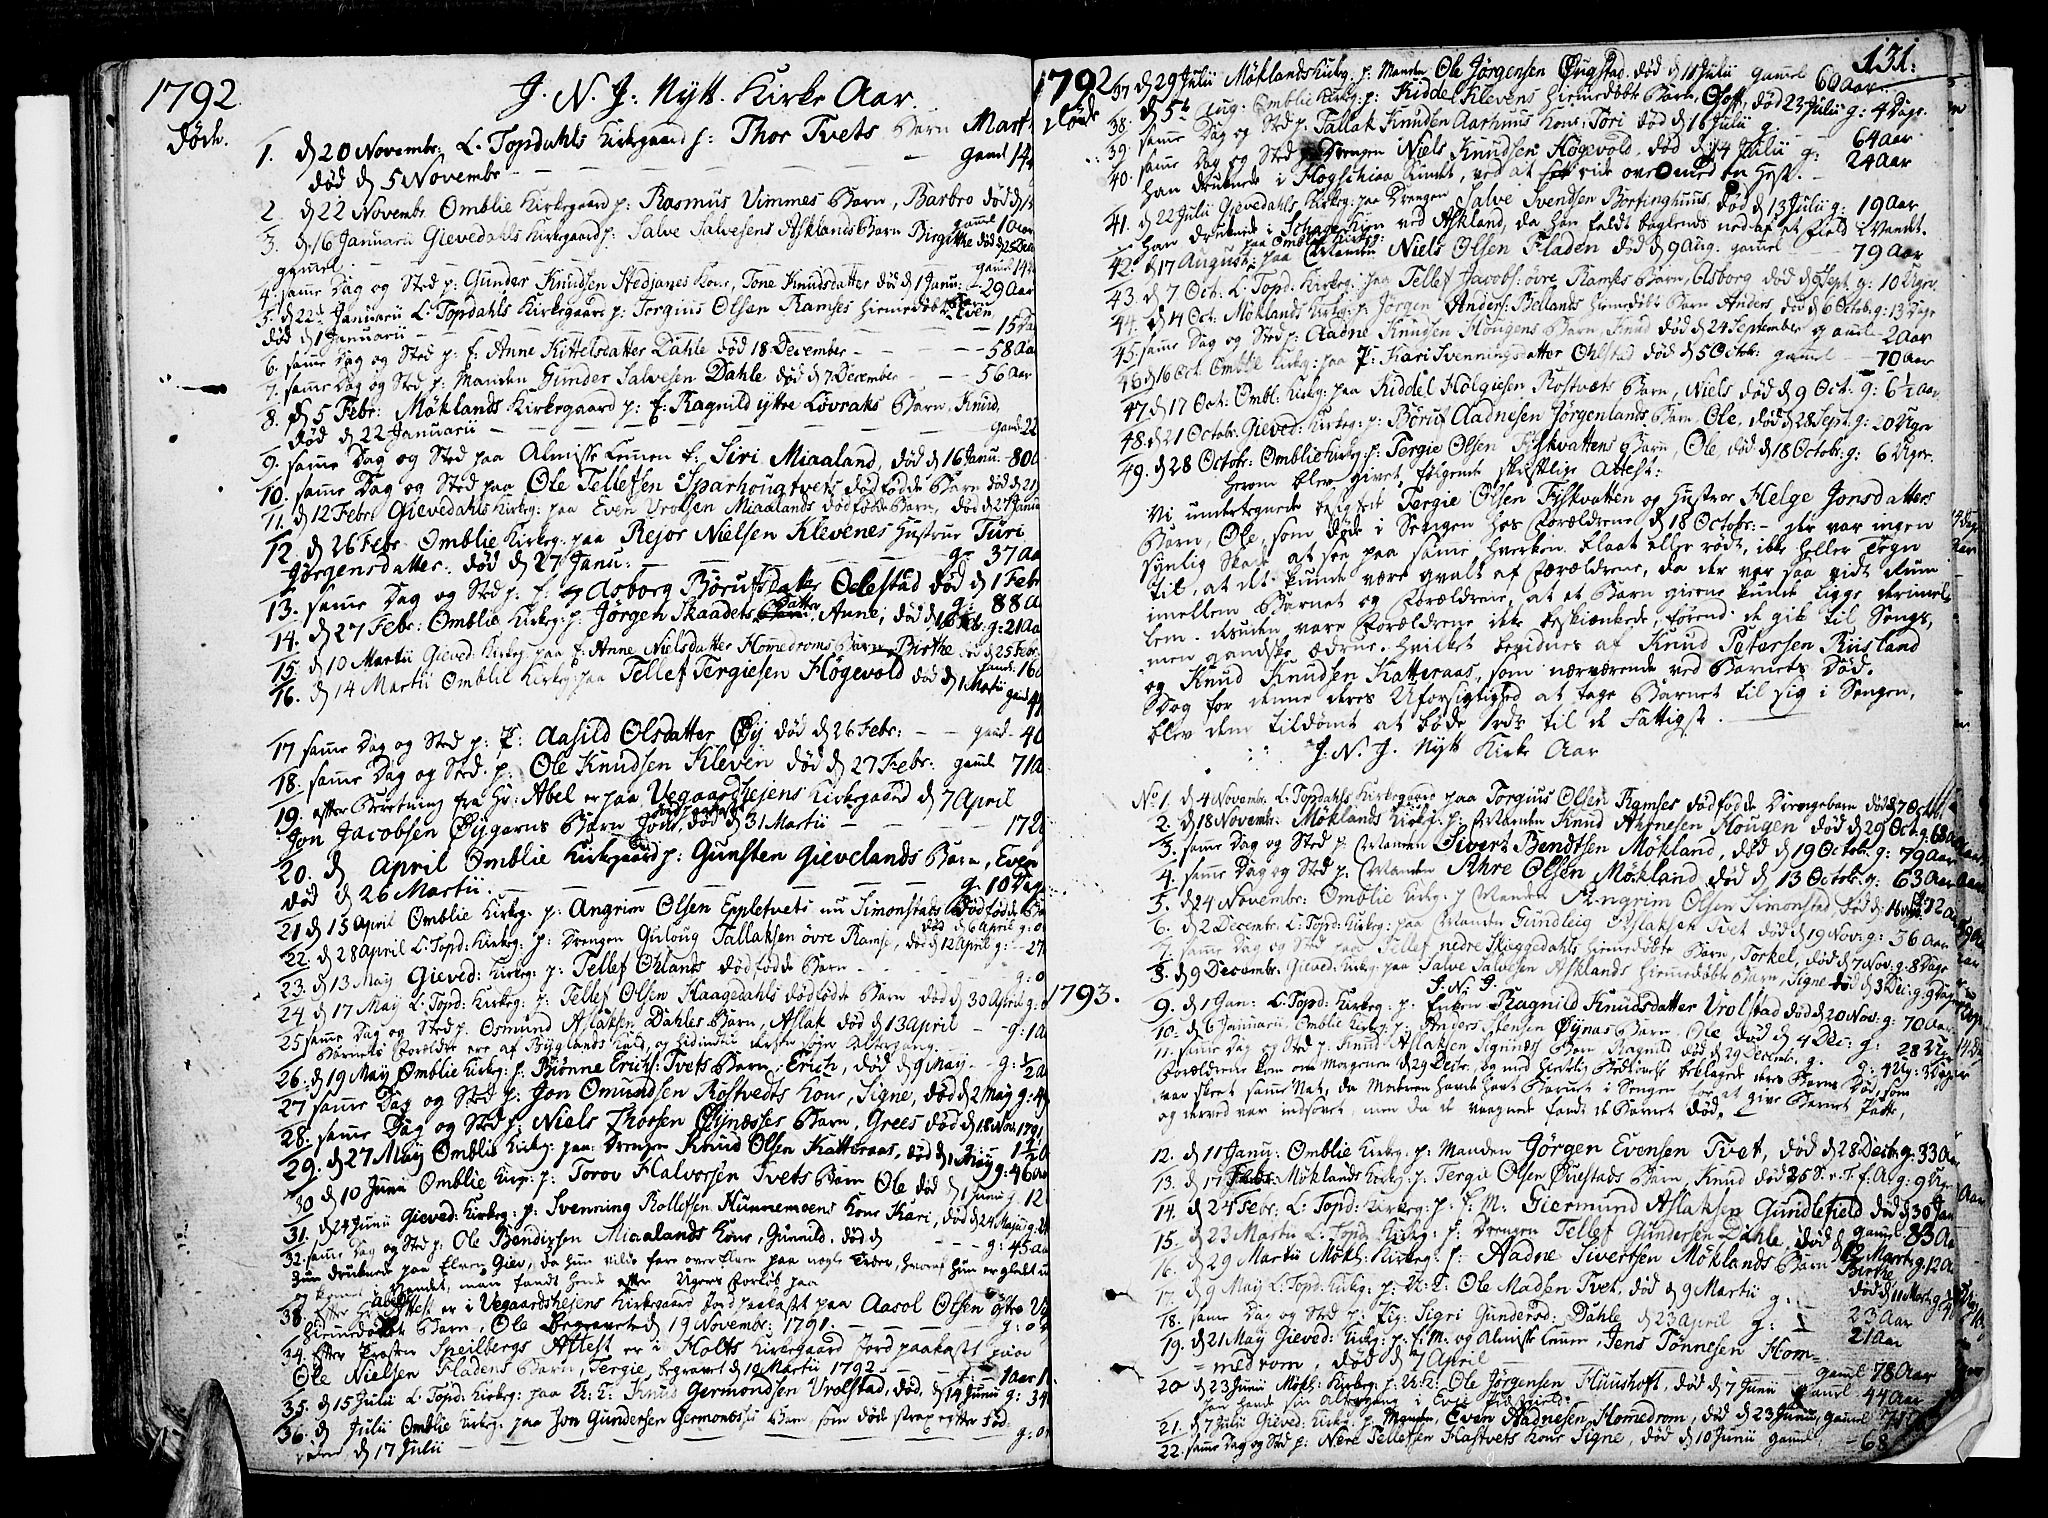 1792.
Døde.
J. N. J: Nytt. Kirke Aar.
1. d 20 Novembr: L. Topdahls Kirkegaard p: Thor Tvets Barn Mart
død d 5 Novembr - - - gaml 14
2. d 22 Novembr Omblie Kirkegaard p: Rasmus Vimmes Barn, Barbro død d
gaml 1
3. d 16 Januarii Gievedahls Kirkegaard p: Salve Salvesens Asklands Barn Birgitthe død d 25 Dec
gamel - - - gaml 14
4. samme Dag og Sted p: Gunder Knudsen Stedjanes Kone, Tone Knudsdatter død d 1 Janu: - 29 Aar
5. d 22 Januarii L: Topdahls Kirkegaard p: Torgius Olsen Ramses hiemedøbt Barn Even
død d 1 Januarii - - - 15
6. samme Dag og Sted p: f: Anne Kittelsdatter Dahle død 18 December - - - 58 Aa
7. samme Dag og Sted p: Manden Gunder Salvesen Dahle død d 7 December - - - 56 Aar
8. d 5 Febr: Møklands Kirkegaard p: f: Ragnild yttre Løvraks Barn, Knud,
død d 22 Januarii - - - gaml 22
9. samme Dag og Sted paa Almisse Lemen f: Siri Miaaland, død d 16 Janu: 80
10. samme Dag og Sted paa Ole Tellefsen Sparhougtvets dødfødde Barn død d 21
11. d 12 Febr. Gievedahls Kirkeg: paa Even Vrolsen Miaalands dødfødde Barn, død d 27 Janua
12. d 26 Febr. Omblie Kirkeg: paa Rejer Nielsen Klevenes Hustrue Turi
Jørgensdatter. død d 27 Janu: - - - g: 37 Aa
13. samme Dag og Sted p: f: Aasborg Børufsdatter Odestad død d 1 Febr
g: 88 A
14. d 27 Febr: Omblie Kirkeg: p: Jørgen Skaadets Datter, Anne, død d 16 Feb. g: 21 Aa
15. d 10 Martii Gieved: Kirkeg: paa f: Anne Nielsdatter Homedroms Barn Birthe død d 25 Febr.
gaml: 16
16. d 14 Martii Omblie Kirkeg: paa Tellef Tergiesen Høgevold død d 1 Martii gaml
17 samme Dag og Sted p: f: Aasild Olsdatter Øy død d 26 Febr: - - gaml - 40
18. samme Dag og Sted. p: Ole Knudsen Kleven død d 27 Febr: gaml 71
19. efter Beretning fra Hr: Abel er paa Vegaardshejens Kirkegaard d 7 April
Jon Jacobsen Øygarns Barn Jon, død d 31 Martii - - - 17
20. d April Omblie Kirkegaard p: Gunsten Gievelands Barn, Even
død d 26 Martii. - - - g: 10 Dag
21 d 15 April Omblie Kirkeg: p: Angrim Olsen Eppletvets nu Simonstads Dødfødde Ba
død d 6 April g: 0
22. d 28 April L: Topd: Kirkeg: p: Drengen Guloug Tallaksen øvre Ramse, død d 12 April g: - 27
23. d 13 May Gieved: Kirkeg: p: Tellef Ohlands dødfødde Barn - - - g: 0
24 d 17 May L. Topd: Kirkeg: p: Tellef Olsen Haagedahls dødfødte Barn død d 30 April g: 0
25 samme Dag og Sted p. Osmund Aslaksen Dahles Barn, Aslak død d 13 April - - g: 1 a
Barnets Forældre ere af Byglands Kald, og
26: d 19 May Omblie Kirkeg: p: Biønne Erichs: Tvets Barn, Erich, død d 9 May - - g: ½ a
27 samme Dag og Sted p: Jon Omundsen Rostvedts Kone, Signe, død d 2 May g: 4
28. samme Dag og Sted p: Niels Thorsen Øynæsses Barn, Grees død d 18 Nov. 1791
29. d 27 May Omblie Kirkeg: paa: Drengen Knud Olsen Katteraas, død d 1 May g: 46 aar
30 d 10 Junii Omblie Kirg: p: Torov Halvorsen Tvets Barn Ole død d 1 Junii g. 12
31. d 24 Junii Gieved: Kirkeg: p: Svenning Rollefsen Hunnemoens Kone Kari, død d 24 Maji g: 28
32. samme Dag og Sted p: Ole Bendixsen Miaalands Kone, Gunnild, død d - - - g: 45 aa
Hun druknede paa Elven Giev, da hun vilde fare over Elven paa nogle Træer, hvoraf hun er gledet u
og kommet i Vandet, man fandt hende efter Ugers Forløb paa
33. Efter Hr: Abels Attest er i Vegaardshejens Kirkegaard Jord paakast paa Aasol Olsen ytre V
hiemmedøbt Barn, Ole Begravet d 19 Novembr: 1791. - - - g: 0
34. Efter Provsten Speilbergs Attest er i Holts Kirkegaard Jord paakast paa
Ole Nielsen Fladens Barn, Tergie, begravet d 19 Martii 1792. - - 1 aar 1
35. d 15 Julii L: Topd: Kirkeg: paa U: K: Knud Germondsen Vrolstad, død, d 14 Junii g: 34
36. d Julii Omblie Kirkeg: paa Jon Gundersen Germonesses Barn, som døde strax efter Fød-
selen, d 17 Julii - - - g: 0
1792
Døde
131.
37 d 29 Julii Møklands Kirkeg: p. Manden Ole Jørgensen Øvgstad. død d 11 Julii gamel 60 Aar.
38. d 5te Aug: Omblie Kirkeg: p: Kiddel Klevens hiemedøbte Barn, Oloff, død 23 Julii g: 4 Dage.
39. samme Dag og Sted p. Tallak Knudsen Aarhuus Kone, Tori død d 16 Julii g. 64 Aar
40. samme Dag og Sted p Drengen Niels Knudsen Høgevold, død d 14 Julii g: 24 Aar
han druknede i Høgschiaa Sundet, ved at ride over med en Hest. -
41. d 22 Julii Gievedahls Kirkeg: paa Drengen Salve Svendsen Bortinghuus, død d 13 Julii g. 19 Aar
han druknede i Schage Kien ved Askland, da han faldt baglends ned af et Field i Vandet.
42. d 17 August: paa Omblie Kirkeg: paa Manden Niels Olsen Fladen død d 9 Aug. gamel - - 79 Aar
43. d 7 Oct. L: Topd: Kirkeg: paa Tellef Jacobs: øvre Ramses Barn, Asborg død d Sept. g: 10 Uger.
44. d 14 Oct: Møklands Kirkeg: p: Jørgen Anders: Bellands hiemedøbt Barn Anders, død d 6 Octob. g: 13 Dage
45. samme Dag og Sted p: Aadne Knudsen Hougens Barn, Knud død d 24 September gamel - 2 Aar
46 d 16 Oct Omblie Kirkeg: paa f: Kari Svenningsdatter Ohlstad død d 5 Octobr: gamel - - 70 Aar
47 d 17 Oct: Ombl: Kirkeg: paa Kiddel Holgiesen Rostvets Barn, Niels død d 9 Oct. g: 6½ Aar
48. d 21 Octobr: Gieved: Kirkeg: p: Børuf Aadnesen Jørgenlands Barn Ole, død d 28 Sept. g: 20 Uger
49. d 28 Octobr: Omblie Kirkeg: p: Tergie Olsen Fiskvattens Barn, Ole død d 18 Octobr: g: 6 Uger.
Herom blev givet følgende skriftlige Attest:
Vi undertegnede besigtede Tergie Olsen Fiskvatten og Hustroe Helge Jonsdatters
Barn, Ole, som døde i Sengen hos Forældrene d 18 Octobr: - der var ingen
synlig Skade at see paa samme, hverken blaat eller rødt, ikke heller Tegn
til, at det kunde være qvalt af Forældrene, da der var saa vidt Rum
imellem Barnet og Forældrene, at et Barn gierne kunde ligge derimel-
lem. desuden vare Forældrene ikke beskiænkede, førend de gik til Sengs,
men gandske ædrue. hvilket bevidnes af Knud Petersen Rusland
og Knud Knudsen Katteraas, som nærværende ved Barnets Død.
Dog for denne deres Uforsigtighed at tage Barnet til sig i Sengen,
blev dem tildømt at bøde 1 rdr til de Fattige.
J. N. J. Nytt Kirke Aar
No 1. d 4 Novembr. L. Topdahls Kirkegaard paa Torgius Olsen Ramses dødfødde Drengebarn død d 7 Octbr.
2. d 18 Novembr: Møklands Kirkeg: p: Manden Knud Ahrnesen Hougen død d 29 Oct: g. 68 aar
3. samme Dag og Sted p: Manden Sivert Bendtsen Møkland, død d 19 Octobr. g: 79 Aar
4. samme Dag og Sted p: Manden Ahre Olsen Møkland død d 13 Octob: g: 63 Aar
5. d 24 Novembr: Omblie Kirkeg: p Manden Angrim Olsen Simonstad, død d: 16 Nov. g: 72 A
6. d 2 Decembr. L: Topd: Kirkeg: paa Manden Gundleig Aslaksen Tvet død d 19 Nov: g: 36 Aar
7. samme Dag og Sted paa Tellef nedre Skeggedahls hiemedøbte Barn, Torkel, død d 7 Nov: g: 8 Dage
8. d 9 Decembr. Gieved: Kirkg: paa Salve Salvesen Asklands hiemedøbte Barn, Signe død d 3 Dec: g: 9 Dage
1793.
J. N. J.
9. d 1 Jan: L. Topd: Kirkeg: p. Enken Ragnild Knudsdatter Vrolstad død d 20 Nov: g: 70 Aar
10. d 6 Januarii, Omblie Kirkg: p: Anders Stensen Øynas Barn, Ole død d 4 Dec: g: 28 Ug
11. samme Dag og Sted p: Knud Aslaksen Signnæs Barn Ragnild død d 29 Decembr g. 4 Ug: Dage
Forældrene kom om Morgenen d 29 Decbr, og med hiertlig Bedrøvelse beklagede deres Barns Død, som
var skeet samme Nat, da Moderen havde havt Barnet i Sengen for at give Barnet Patte,
og derved var indsovet, men da de vaagnede fandt de Barnet død.
12. d 11 Janu: Omblie Kirkeg: p: Manden Jørgen Evensen Tvet, død d 28 Decbr g: 33 Aa
13. d 17 Febr: Møklands Kirkeg: p: Tergie Olsen Øvestads Barn, Knud død d S. e. T. f. A g. 9 Uger
14. d 24 Febr: L: Topd: Kirkeg: p: f. M: Giermund Aslaksen Gundlefield død d 30 Jan
gamel 83 A
15. d 23 Martii L: Topd Kirkg: p: Drengen Tellef Gundersen Dahle, død d 12 Mart. g. 12 A
16. d 29 Martii Møkl: Kirkeg: p: Aadne Sivertsen Møklands Barn Birthe
død d 11 Mart. g
17. d 9 May L: Topd: Kirkg: p: U: K: Ole Madsen Tvet, død d 9 Martii g: 23 Aar
18. samme Dag og Sted p: Pig: Sigri Gundersd: Dahle d 23 April g: 21 Aar
19. d 21 May Gieved: Kirkg: p. f. M. og Almisse Lemen, Jens Tønnesen Hom-
= medrom, død d 7 April - - - gamel 78 Aar
20 d 23 Junii Møkl: Kirkeg: p: U: K: Ole Jørgensen Huushoft, død d 7 Junii gamel 44 Aar
han havde sin Altergang i Evje Præstegield.
21. d 7 Julii Gieved: Kirkg: p. Manden, Even Aadnesen Homedrom, død d 23 Junii, gamel 75
22. samme Dag og Sted p: Nere Tellefsen Hastvets Kone Signe, død d 10 Junii gamel. - 68